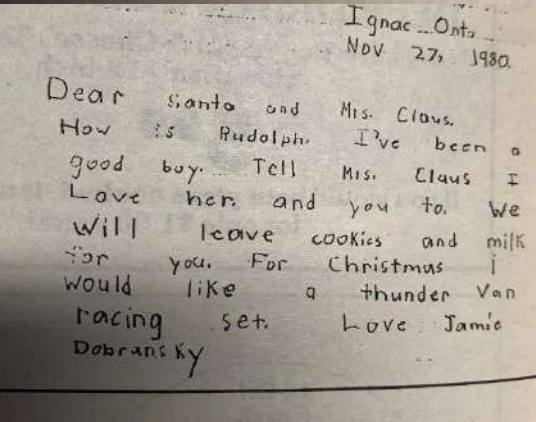 Ignac Ont.
Nov 27, 1980.
Dear Santa and Mrs. Claus.
How is Rudolph. I've been a
good boy. Tell Mrs. Claus I
Love her. and you to. We
Will leave cookies and milk
for you. For Christmas i
would like a thunder Van
racing set. Love Jamie
Dobransky